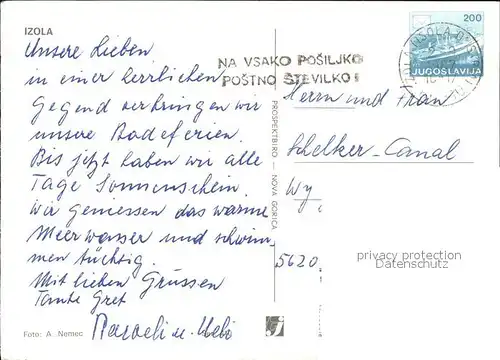 IZOLA
Unsere Lieben
in einer herrlichen
Gegend verbringen wir
unsere Badeferien.
Bis jetzt haben wir alle
Tage Sonnenschein.
Wir geniessen das warme
Meerwasser und schwim
men tüchtig.
Mit lieben Grüssen
Tante Gret
u. Ueli
Foto: A. Nemec
PROSPEKTBIRO - NOVA GORICA
NA VSAKO POŠILJKO
POŠTNO ŠTEVILKO!
200
JUGOSLAVIJA
IZOLA ISOLA
Herrn und Frau
Schelker-Canal
Wy
5620
privacy protection
Datenschutz